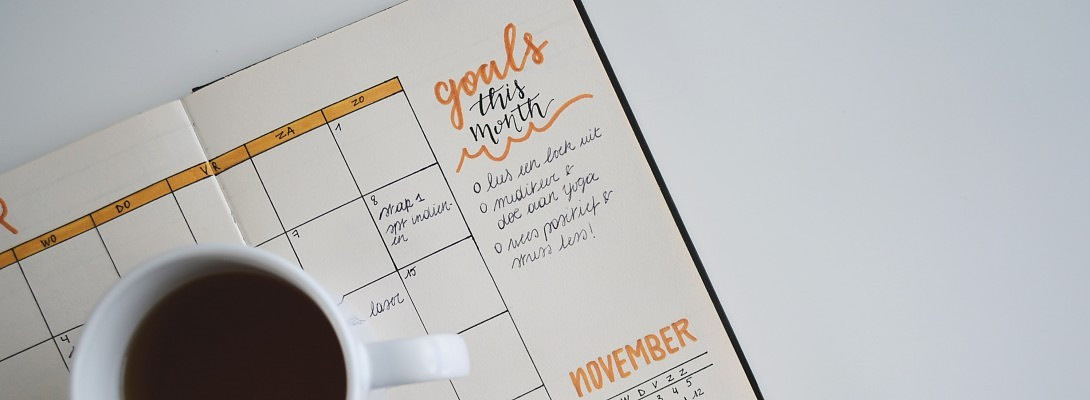 R
WO
DO
VR
ZA
ZO
1
4
7
8
stap 1
spt indien-
en
15
laser
goals
this
month
o lees een boek uit
o mediteer &
doe aan yoga
o wees positief &
stress less!
NOVEMBER
W D V Z Z
3 4 5
12